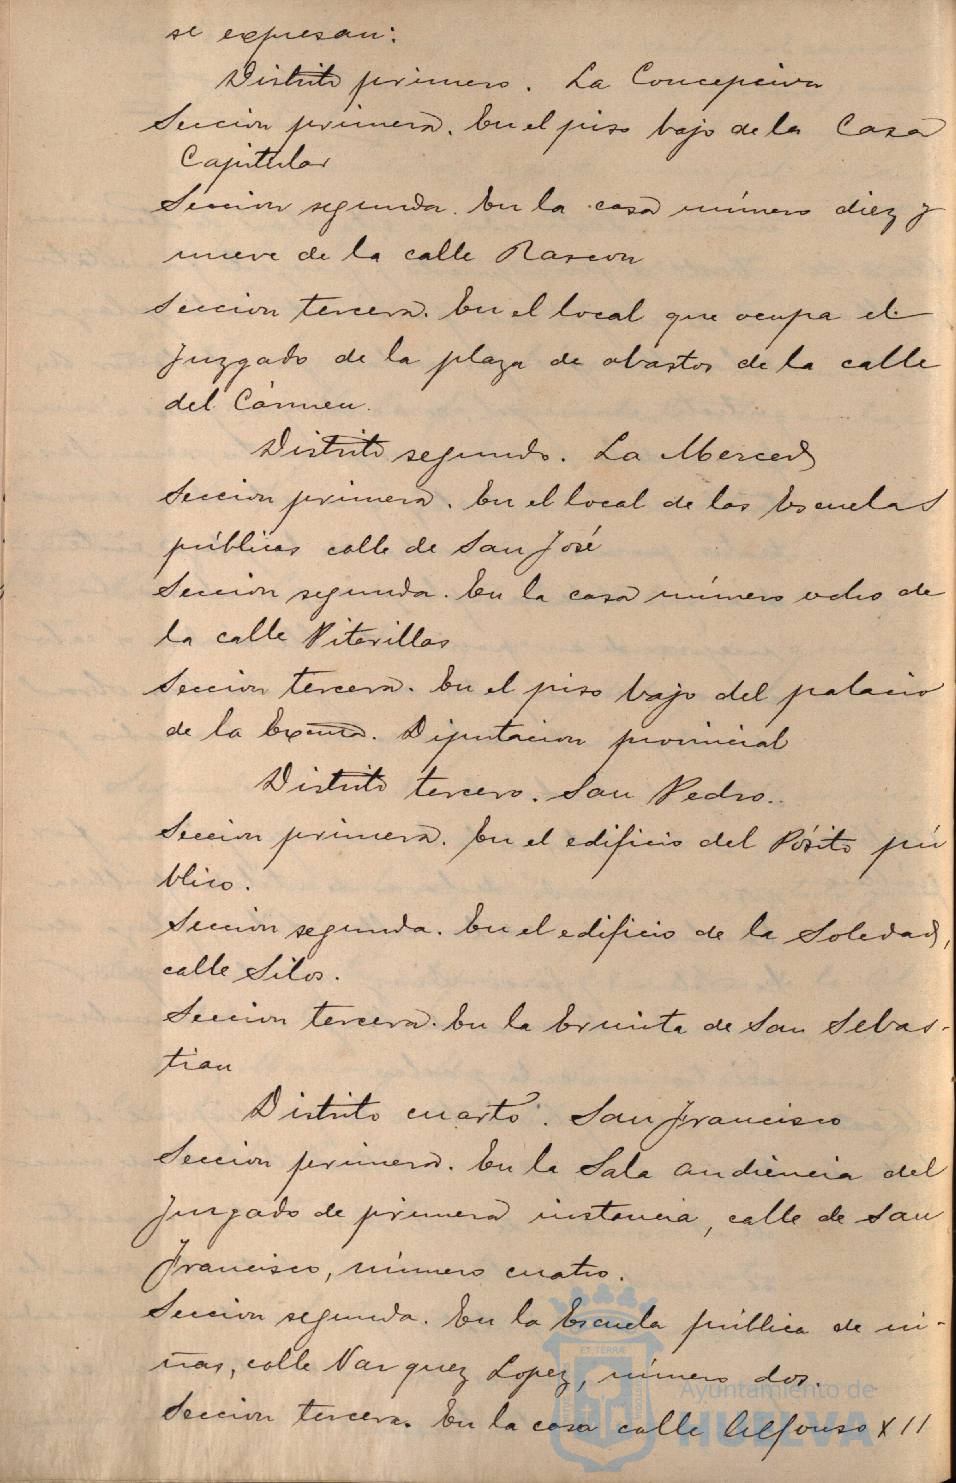 se expresan:
Distrito primero. La Concepcion
Seccion primera. En el piso bajo de la Casa
Capitular
Seccion segunda. En la casa número diez y
nueve de la calle Rascon
Seccion tercera. En el local que ocupa el
juzgado de la plaza de abastos de la calle
del Cármen.
Distrito segundo. La Merced
Seccion primera. En el local de las Escuelas
públicas calle de San José
Seccion segunda. En la casa número ocho de
la calle Viterillas
Seccion tercera. En el piso bajo del palacio
de la Excma. Diputacion provincial
Distrito tercero. San Pedro.
Seccion primera. En el edificio del Pósito pú
blico.
Seccion segunda. En el edificio de la Soledad,
calle Silos.
Seccion tercera. En la Ermita de San Sebas-
tian
Distrito cuarto. San Francisco
Seccion primera. En la Sala audiencia del
Juzgado de primera instancia, calle de San
Francisco, número cuatro.
Seccion segunda. En la Escuela pública de ni-
ñas, calle Vazquez Lopez, número dos.
Seccion tercera. En la casa calle Alfonso XII
Ayuntamiento de
HUELVA